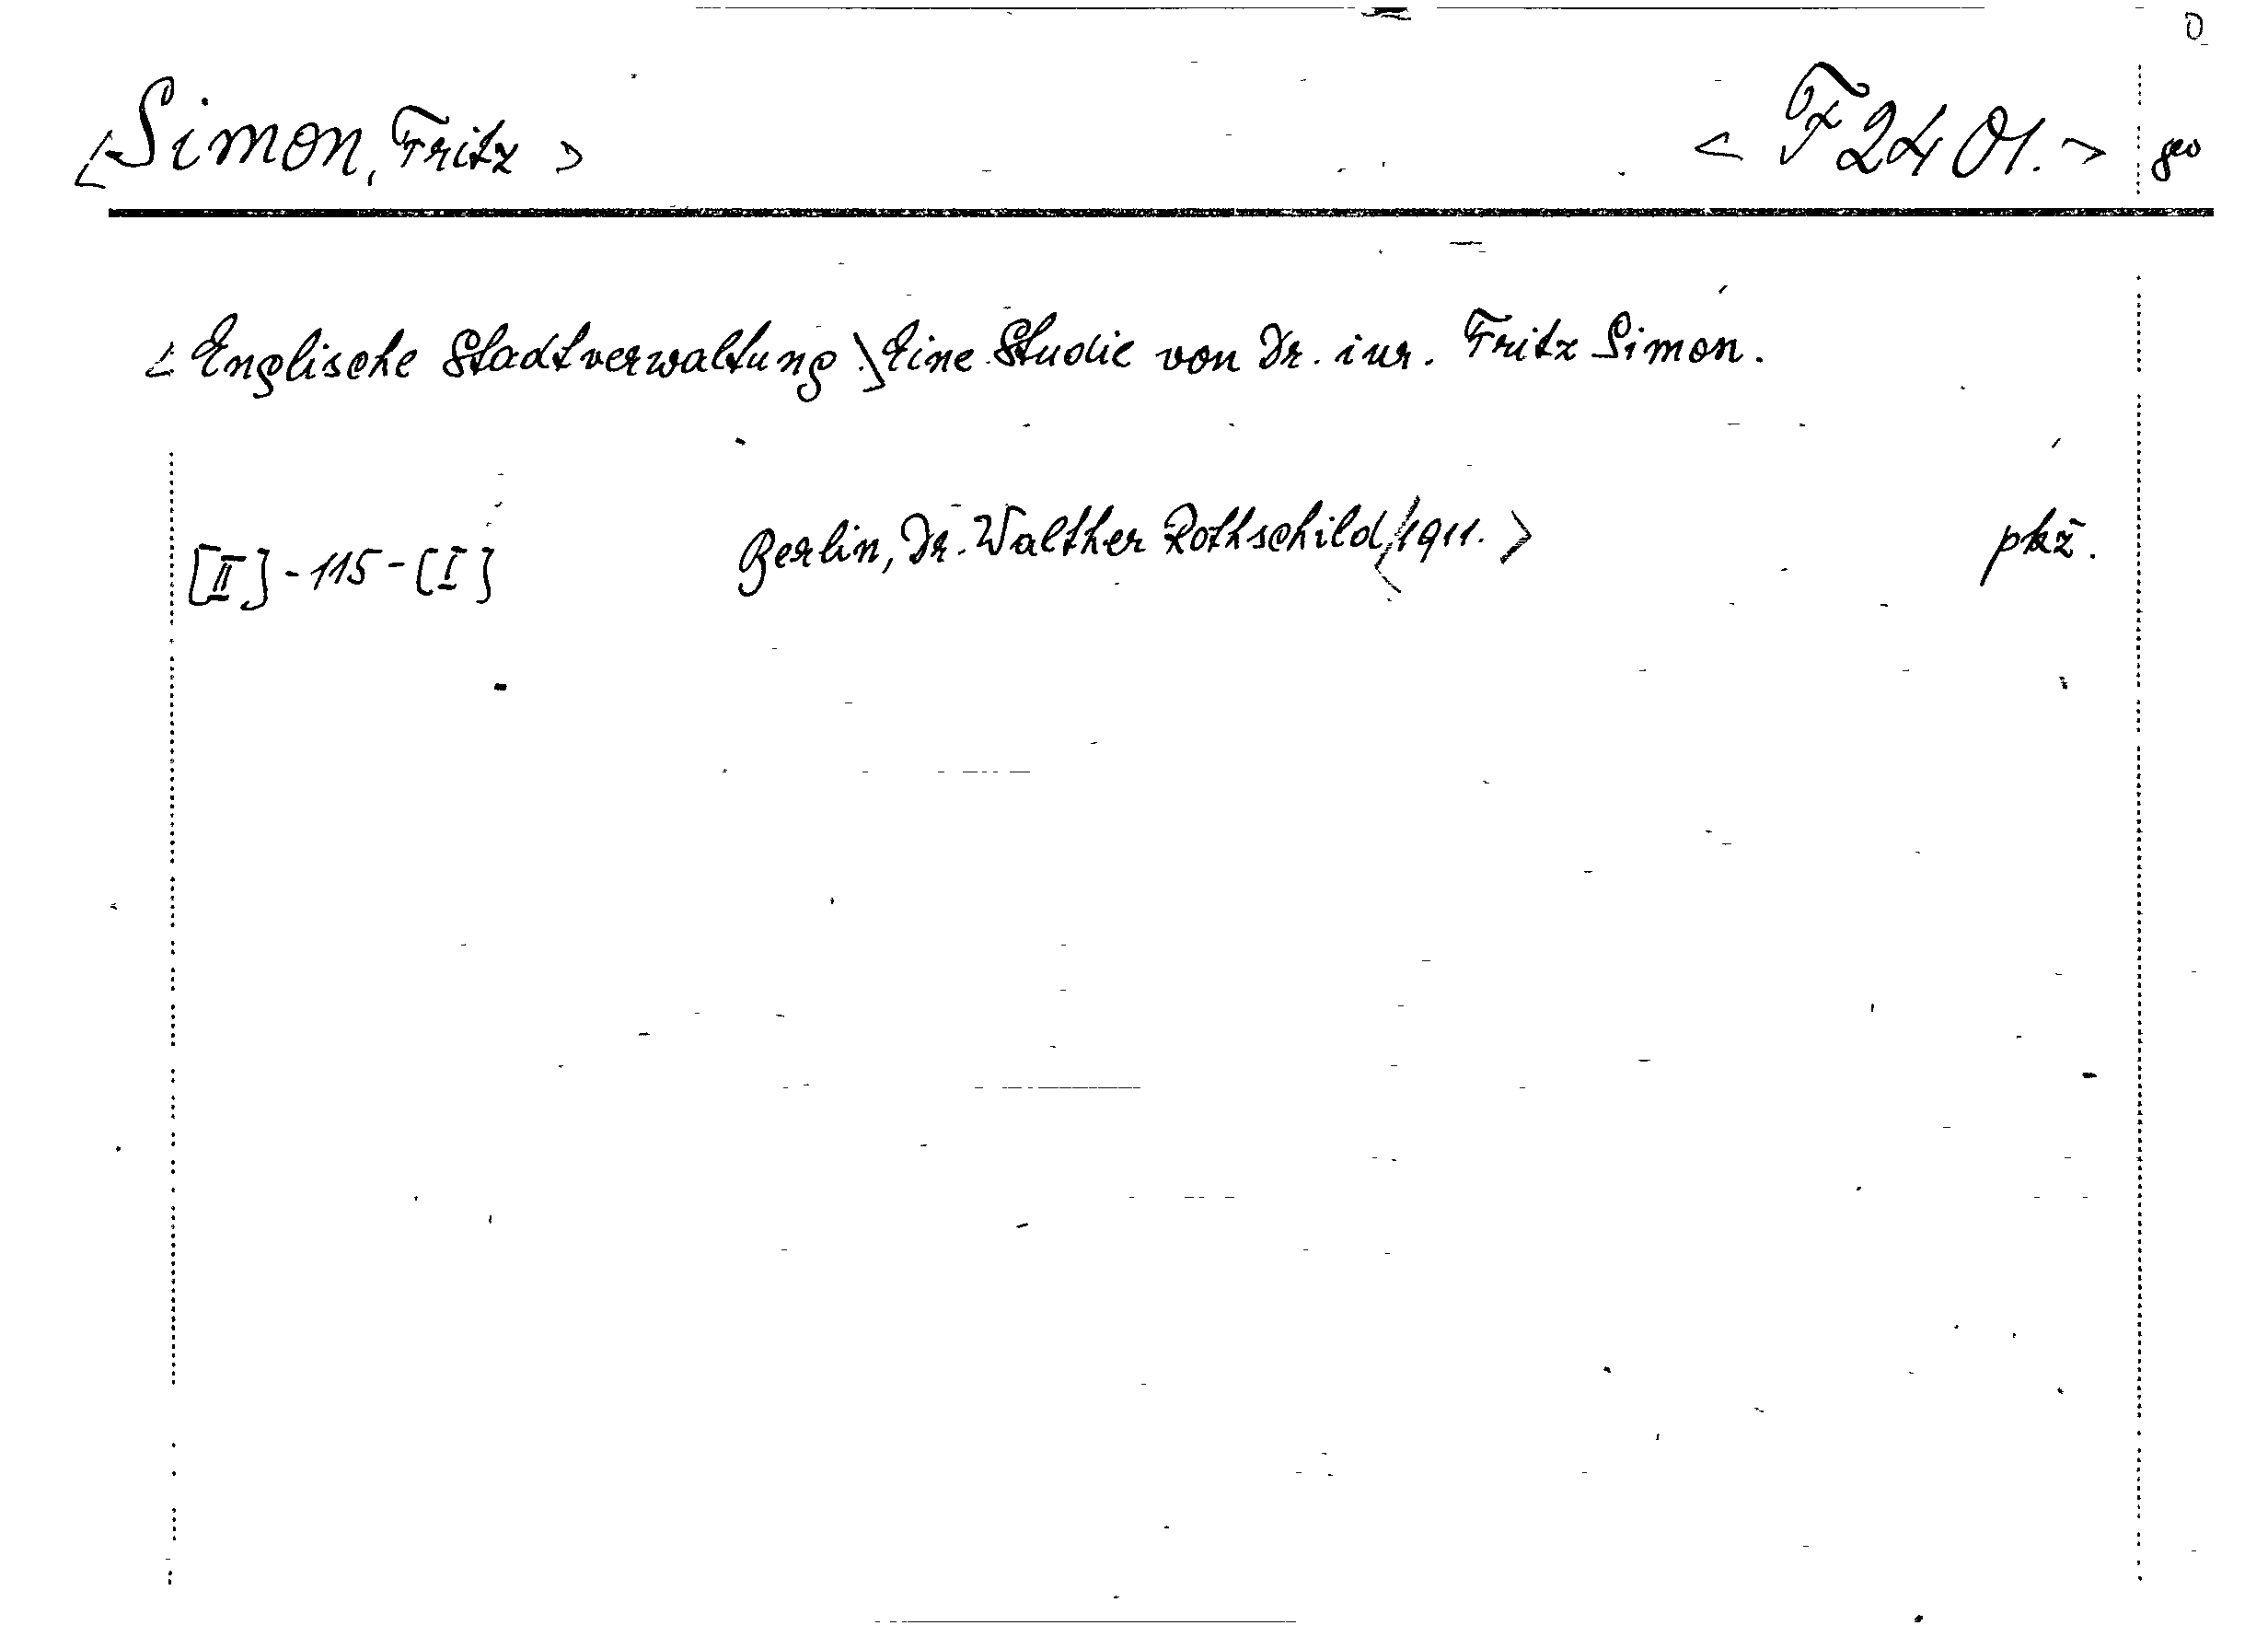 0
<Simon, Fritz> <F 2401.> geo
<Englische Stadtverwaltung.> Eine Studie von Dr. iur. Fritz Simon.
[II]-115-[I] Berlin, Dr. Walther Rothschild, <1911.> pkž.